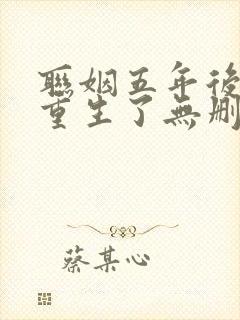 聯姻五年後
重生了無刪
蔡某心